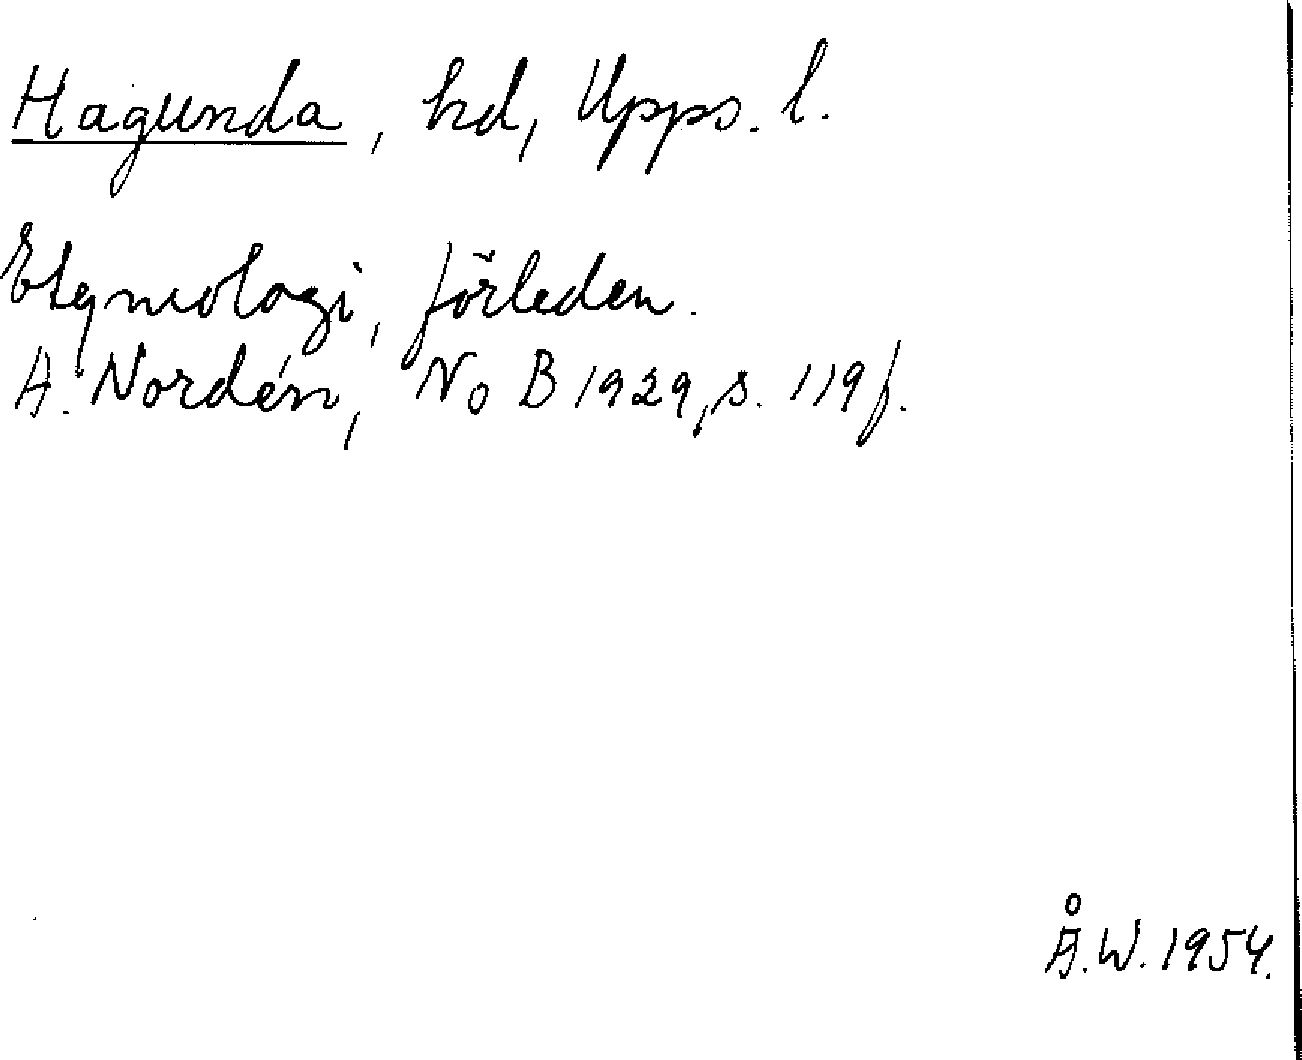 Hagunda, hd, Upps. l.
Etymologi, förleden.
A. Nordén, NoB 1929, s. 119 f.
Å.W. 1954.